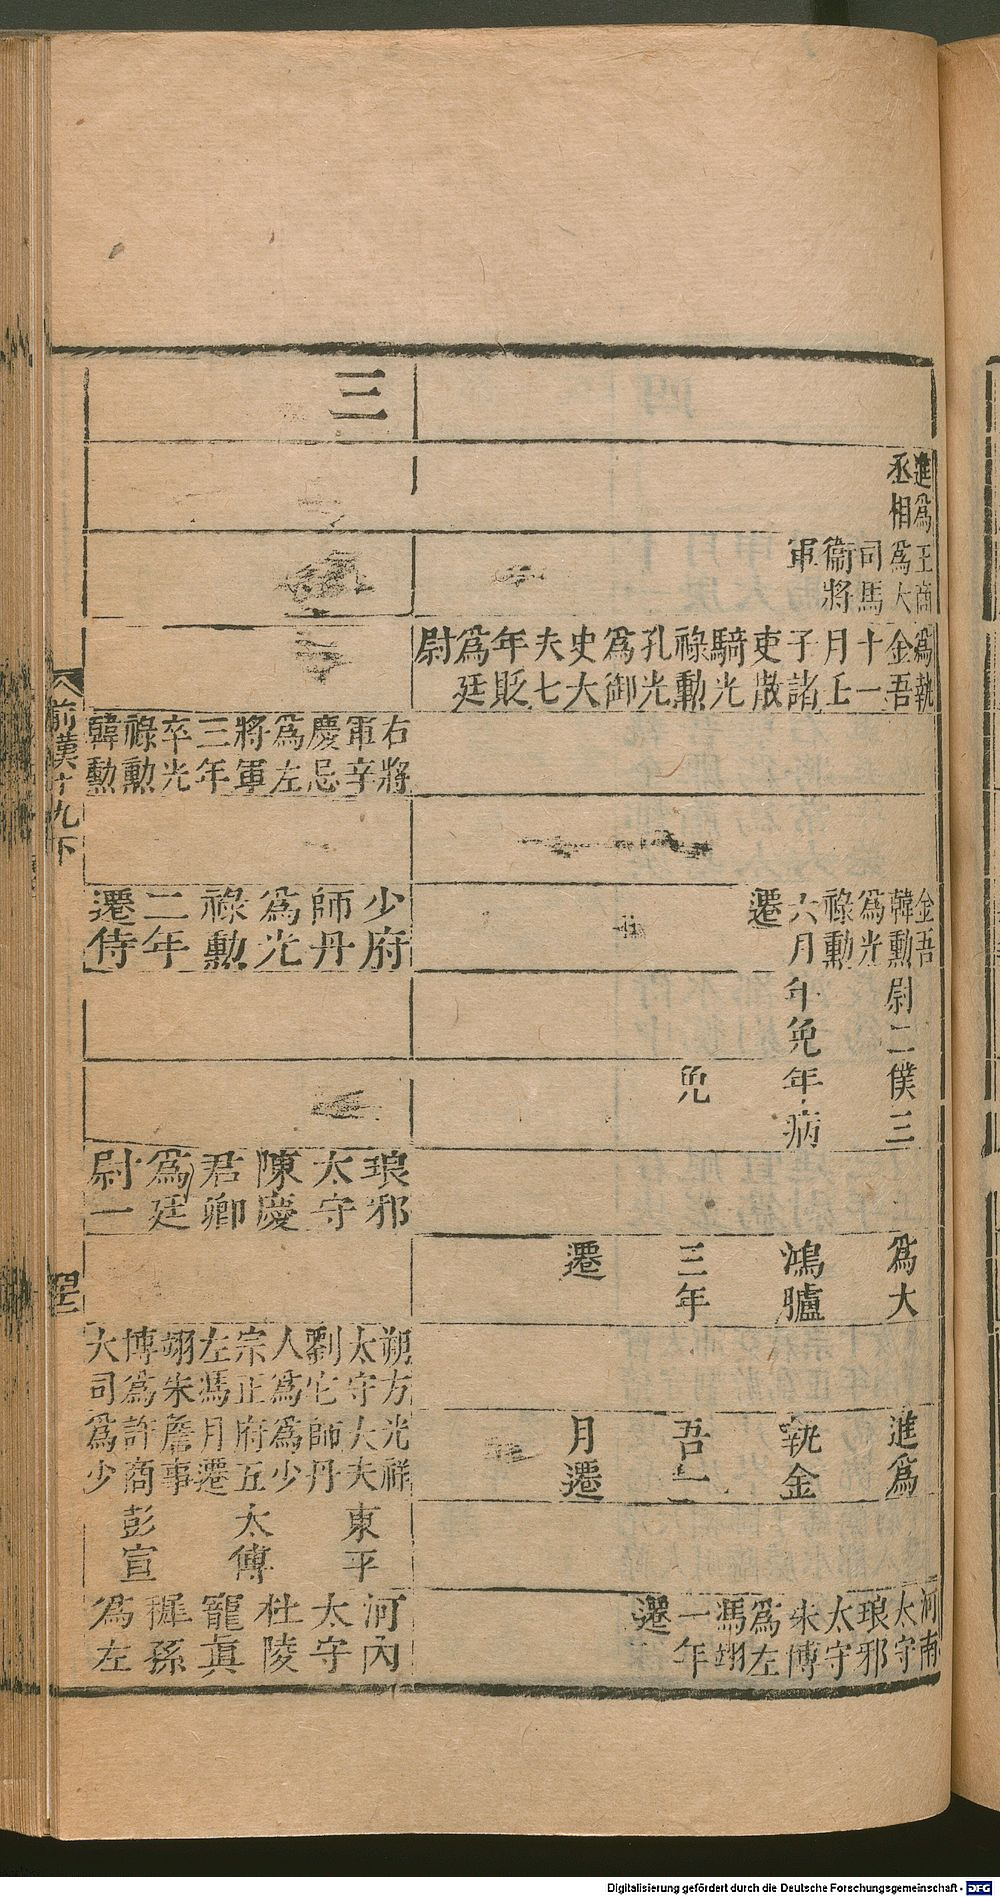 進爲丞相
王商爲大司馬衞將軍
爲執金吾十一月上子諸吏散騎光祿勳孔光爲御史大夫七年貶爲廷尉
金吾韓勳爲光祿勳六月遷
尉二年免
僕三年病免
爲大鴻臚三年遷
進爲執金吾一月遷
河南太守琅邪太守朱博爲左馮翊一年遷
三
右將軍辛慶忌爲左將軍三年卒光祿勳韓勳
少府師丹爲光祿勳二年遷侍
琅邪太守陳慶君卿爲廷尉一
朔方太守劉它人爲宗正左馮翊朱博爲大司
光祥大夫師丹爲少府五月遷詹事許商爲少
東平太傅彭宣
河內太守杜陵寵眞穉孫爲左
前漢十九下
Digitalisierung gefördert durch die Deutsche Forschungsgemeinschaft - DFG